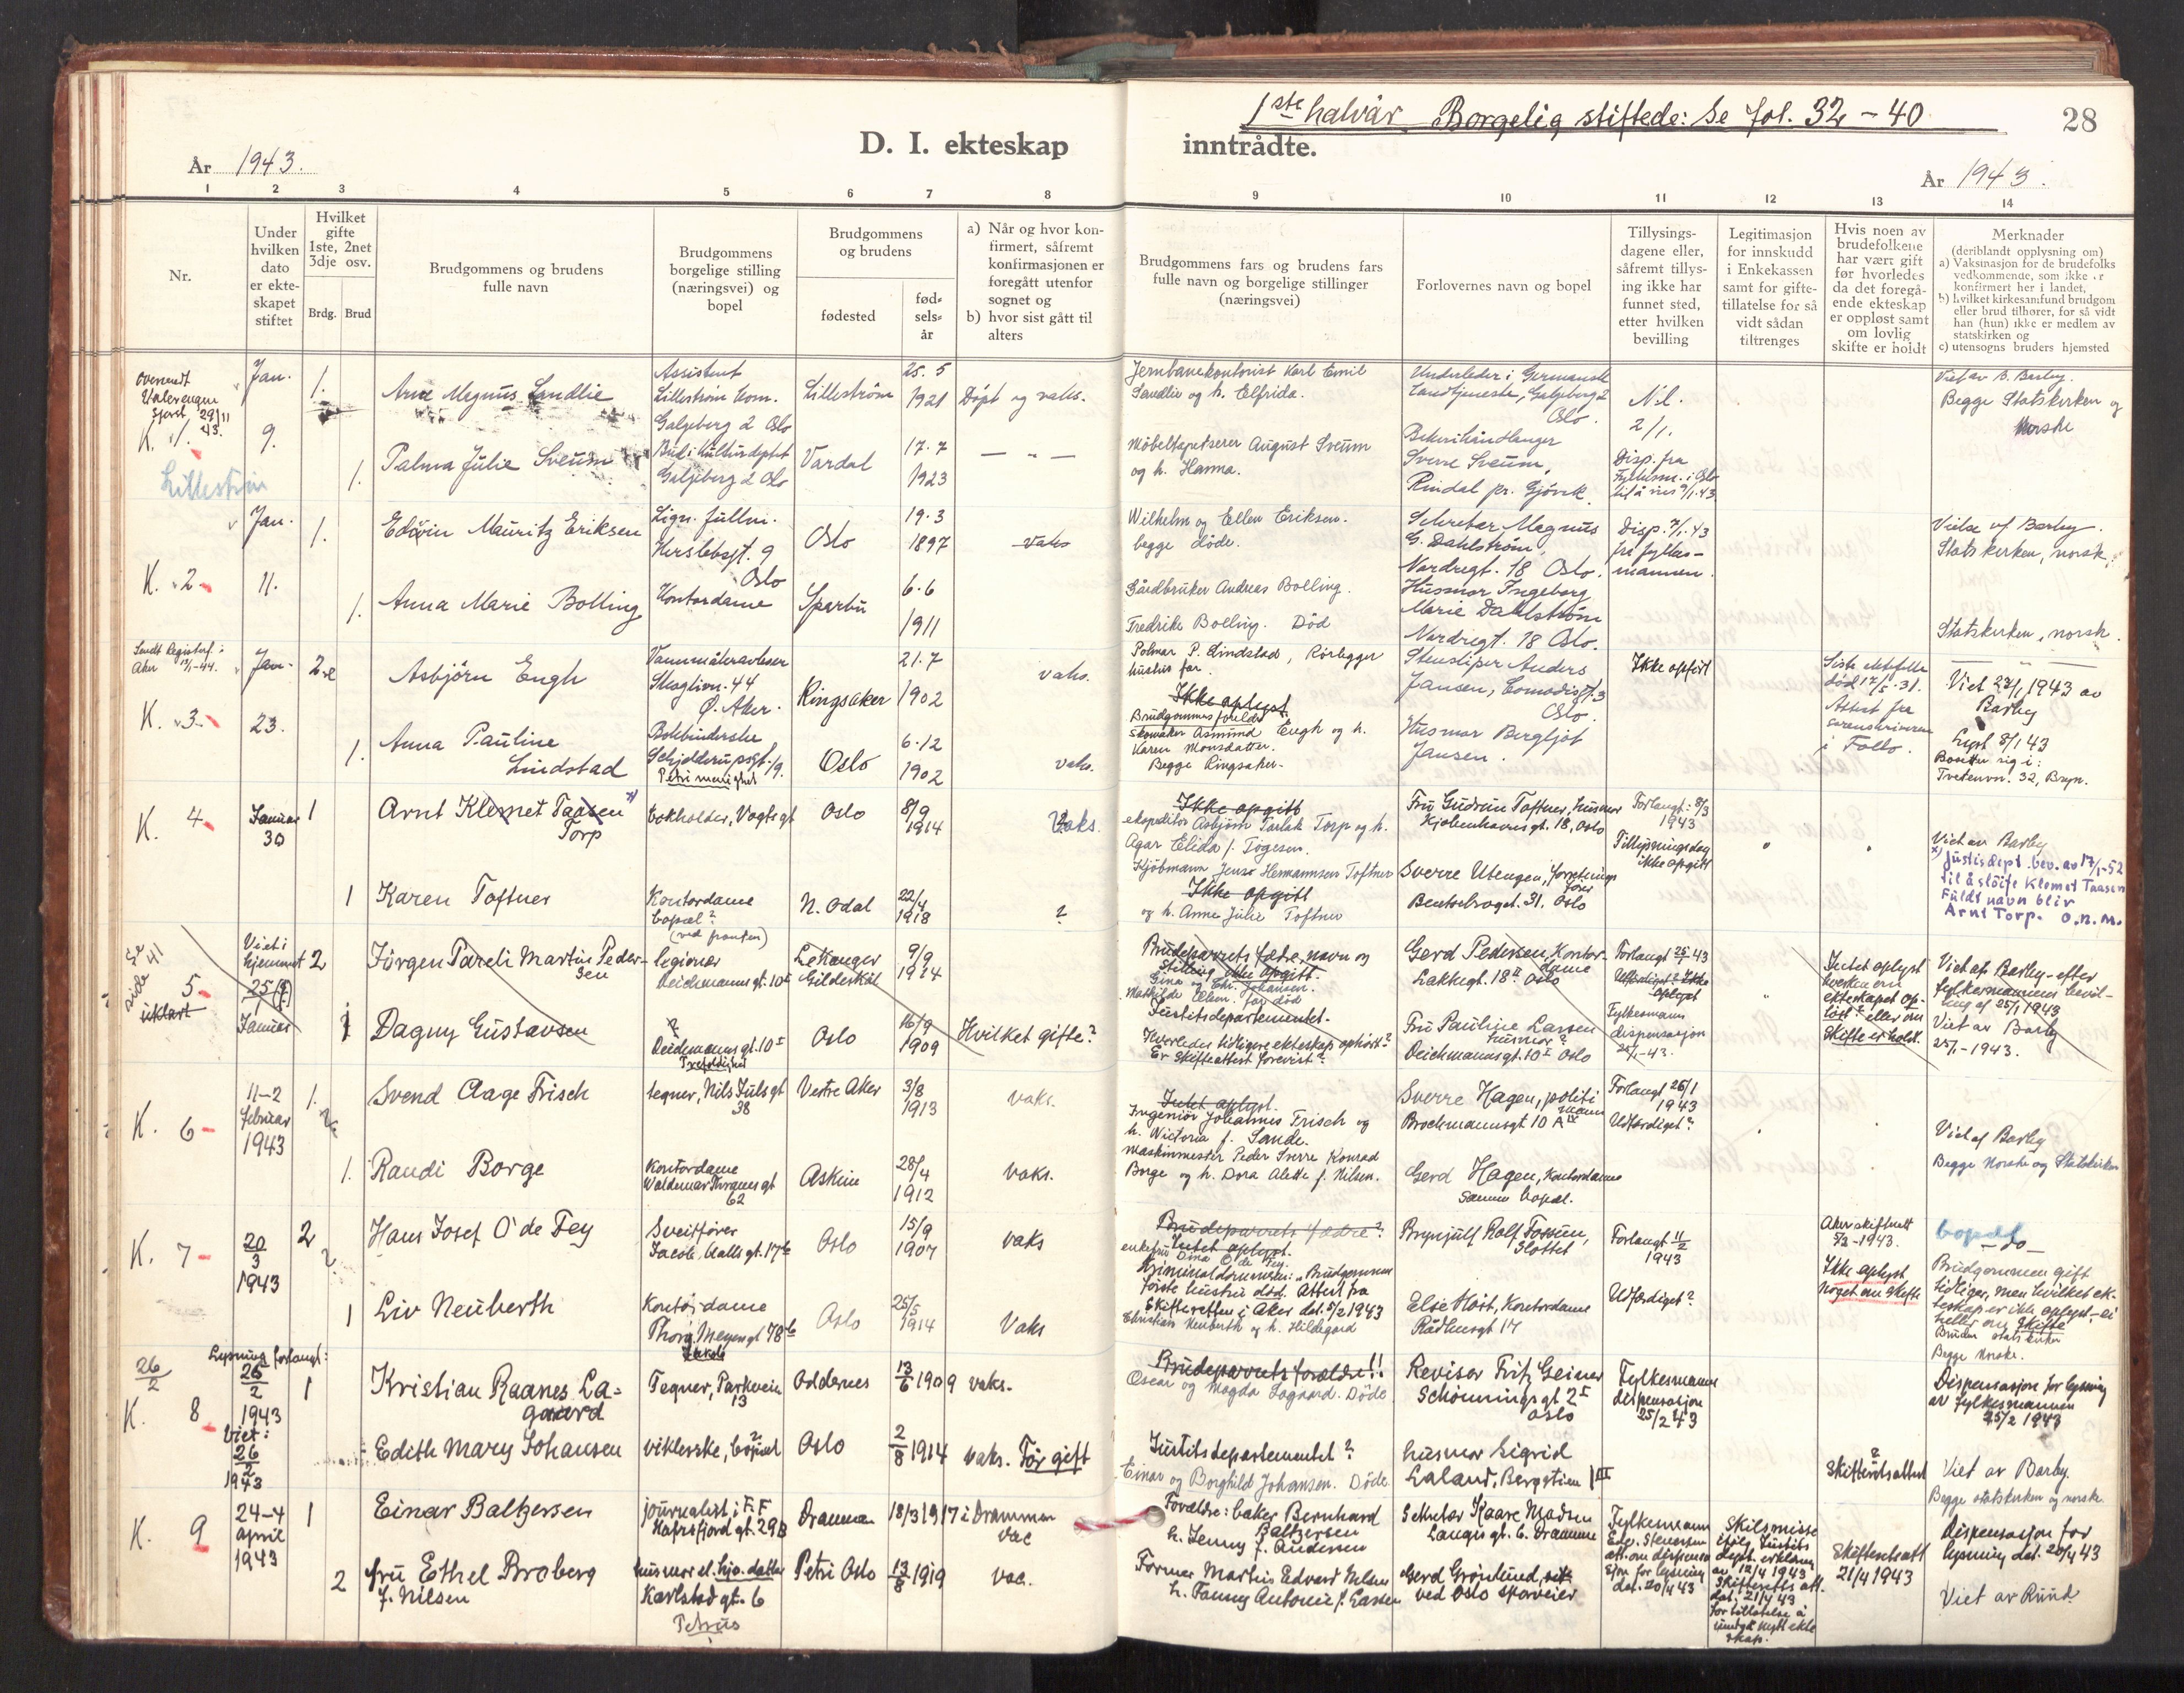 1ste halvår Borgelig stiftede: Se fol. 32 - 40
28
D. I. ekteskap inntrådte.
År 1943.
År 1943.
1 2 3 4 5 6 7 8 9 10 11 12 13 14
Nr.
Under hvilken dato er ekte-skapet stiftet
Hvilket gifte 1ste, 2net 3dje osv.
Brdg. Brud
Brudgommens og brudens fulle navn
Brudgommens borgelige stilling (næringsvei) og bopel
Brudgommens og brudens
fødested
fød-sels-år
a) Når og hvor kon-firmert, såfremt konfirmasjonen er foregått utenfor sognet og
b) hvor sist gått til alters
Brudgommens fars og brudens fars fulle navn og borgelige stillinger (næringsvei)
Forlovernes navn og bopel
Tillysings-dagene eller, såfremt tillys-ing ikke har funnet sted, etter hvilken bevilling
Legitimasjon for innskudd i Enkekassen samt for gifte-tillatelse for så vidt sådan tiltrenges
Hvis noen av brudefolkene har vært gift før hvorledes da det foregå-ende ekteskap er oppløst samt om lovlig skifte er holdt
Merknader
(deriblandt opplysning om)
a) Vaksinasjon for de brudefolks vedkommende, som ikke er konfirmert her i landet,
b) hvilket kirkesamfund brudgom eller brud tilhører, for så vidt han (hun) ikke er medlem av statskirken og
c) utensogns bruders hjemsted
K. 1.
Lillestrøm
Jan. 9.
1.
Arne Magnus Sandlie
Assistent
Lillestrøm kom.
Galgeberg 2 Oslo
Lillestrøm
25. 5
1921
Døpt og vaks.
Jernbanekontorist Karl Emil
Sandlie og h. Elfrida.
Oslo.
2/1.
Viet av B. Barby.
Begge Statskirken og
Norske
1.
Palma Julie Sveum
Galgeberg 2 Oslo
Vardal
17. 7
1923
Møbeltapetserer August Sveum
og h. Hanna.
Sverre Sveum,
Rindal pr. Gjøvik
Disp. fra
K. 2
Jan. 11.
1.
Edwin Mauritz Eriksen
Herslebsgt. 9
Oslo
Oslo
19. 3
1897
vaks
Wilhelm og Ellen Eriksen.
begge døde.
Magnus
G. Dahlstrøm,
Nordregt. 18 Oslo.
Disp. 7/1.43
fra fylkes-
mannen.
Vielse v/ Barby.
Statskirken, norsk.
1.
Anna Marie Bolling
Kontordame
Sparbu
6. 6
1911
Gårdbruker Andreas Bolling.
Fredrikke Bolling. Død
Husmor Ingeborg
Marie Dahlstrøm
Nordregt. 18 Oslo.
Statskirken, norsk.
K. 3
Jan. 23.
2.
Asbjörn Engh
Vannmåleravleser
Ø. Aker.
Ringsaker
21. 7
1902
vaks.
Polmar P. Lindstad, Rørlegger
hustrus far.
Ikke oplyst
Brudgommens foreldre
Skomaker Asmund Engh og h.
Karen Monsdatter.
Begge Ringsaker.
Anders
Jansen,
Oslo.
Ikke opført
død 17/5.31.
Attest fra
sorenskriveren
i Follo.
Viet 23/1 1943 av
Barby
Lyst 8/1 43
Bosetter sig i:
Tvetenvn. 32, Bryn.
1.
Anna Pauline
Lindstad
Bokbinderske
Schjelderupsgt. 19.
Petri menighet
Oslo
6. 12
1902
vaks.
Husmor Bergljot
Jansen.
K. 4
Januar 30
1
Arnt Klemet Taasen
Torp
bokholder, Vogtsgt
Oslo
8/9
1914
Vaks.
Ikke opgitt
ekspeditør Asbjørn Tarlak Torp og h.
Agar Elida f. Tøgesen.
Fru Gudrun Toftner, husmor
Kjøbenhavnsgt. 18, Oslo
Forlangt: 8/3
1943
Tillysningsdag
ikke opgitt
Viet av Barby
x) Justisdept. bev. av 17/1-52
til å sløife Klemet Taasen
Fuldt navn blir
Arnt Torp. O.n.m.
1
Karen Toftner
Kontordame
bopæl?
N. Odal
22/4
1918
?
Kjøbmann Jens Hermannsen Toftner
Ikke opgitt
og h. Anne Julie Toftner
Sverre Utengen,
Bentsebrogt. 31. Oslo
Se side 41
5
uklart
Viet i
hjemmet
25 (?)
Januar
2
Jörgen Pareli Martin Peder-
sen
legionær
Deichmanns gt. 10 I
Lekanger
Gildeskål
9/9
1914
Brudeparrets fædre, navn og
stilling ikke opgitt.
Gerd Pedersen, Kontor-
dame
Lakkegt. 18 II Oslo
Forlangt 25/1 43
Intet oplyst
hverken om
ekteskapet op-
løst? eller om
Skifte er holdt.
Viet af Barby - efter
fylkesmannens bevil-
ling af 25/1 1943
Viet av Barby
25/1-1943.
1
Dagny Gustavsen
?
Deichmanns gt. 10 I
Oslo
16/9
1909
Hvilket gifte?
Justitsdepartementet.
Hvorledes tidligere ekteskap ophört?
Er skifteattest forevist?
Fru Pauline Larsen
husmor?
Deichmannsgt. 10 I Oslo
Fylkesmann
dispensasjon
K. 6
11-2
februar
1943
1.
Svend Aage Frisch
tegner, Nils Juls gt
38
Vestre Aker
3/8
1913
vaks.
Intet oplyst.
Ingeniør Johannes Frisch og
h. Victoria f. Sande.
Sverre Hagen, politi
mann
Brochmannsgt 10 A
Forlangt 26/1
1943
Utfærdiget?
1.
Randi Borge
Kontordame
Waldemar Thranes gt
62
Askim
28/4
1912
vaks.
Maskinmester Peder Sverre Konrad
Borge og h. Dora Alette f. Nilsen.
Gerd Hagen, Kontordame
Samme bopæl.
Viet af Barby
Begge Norske og Statskirken
K. 7
20/3
1943
2
Hans Josef O'de Fey
Sveitfører
Jacob Aalls gt. 17 b
Oslo
15/9
1907
vaks
Brudeparrets fædre?
Intet oplyst.
Kriminaldommeren: "Brudgommens
første hustru død. Attest fra
Skifteretten i Aker dat. 5/2 1943
Brynjulf Rolf Fossum,
Slottet
Forlangt 11/2
1943
Aker skifterett
5/2-1943.
Ikke oplyst
noget om skifte
bopæl
- do -
Brudgommen gift
tidliger, men hvilket ek-
teskap er ikke oplyst - ei
heller om skifte
Bruden statskirken
Begge Norske.
1
Liv Neuberth
Kontordame
Thorv. Meyers gt 78 b
Oslo
25/5
1914
Vaks
Christian Neuberth og h. Hildegard
Else Høst, Kontordame
Rådhusgt 17
Utfærdiget?
26/2
K. 8
Lysning forlangt:
25/2
1943
Viet:
26/2
1943
1
Kristian Raanes La=
gaard
Tegner, Parkveien
13
Oddernes
13/6 1909
vaks.
Brudeparrets forældre!!
Oscar og Magda Lagaard. Døde
Revisor Fritz Geiner
Schønnings gt 2 I
Oslo
Fylkesmanns
dispensasjon
25/2 43
Dispensasjon for lysning
av fylkesmannen
25/2 1943
Edith Mary Johansen
viklerske, bopæl?
Oslo
2/8 1914
vaks. Før gift
Justitsdepartementet?
Einar og Borghild Johansen. Døde
husmor Sigrid
Laland, Bergstien 1 III
?
Skifteretsattest
Viet av Barby.
Begge statskirken og norske.
K. 9
24-4
april
1943
1
Einar Baltzersen
journalist i F.F
Hafrsfjord gt. 29 B
Drammen
18/3 1917
i Drammen
vac
Forældre: baker Bernhard
Baltzersen
h. Jenny f. Andersen
Sekretær Kaare Madsen
Langes gt. 6. Drammen
Fylkesmann
att. om dispensa
sjon for lysning
dat. 20/4 43
Skilsmisse
ifølg Justits
dept. erklæring
av 12/4 1943
Skifteretts att.
dat. 21/4 43
for tillatelse å
inngå nytt ekte
skap.
Skifteretsatt
21/4 1943
Dispensasjon for
lysning dat. 20/4 43
Viet av Rund
2
fru Ethel Broberg
f. Nilsen
husmor el. hjv. datter
Karlstad gt. 6
Petrus
Petri Oslo
13/8 1919
vac.
Former Martin Edvard Nilsen
h. Fanny Antonie f. Larsen
Gerd Grønlund,
ved Oslo sporveier